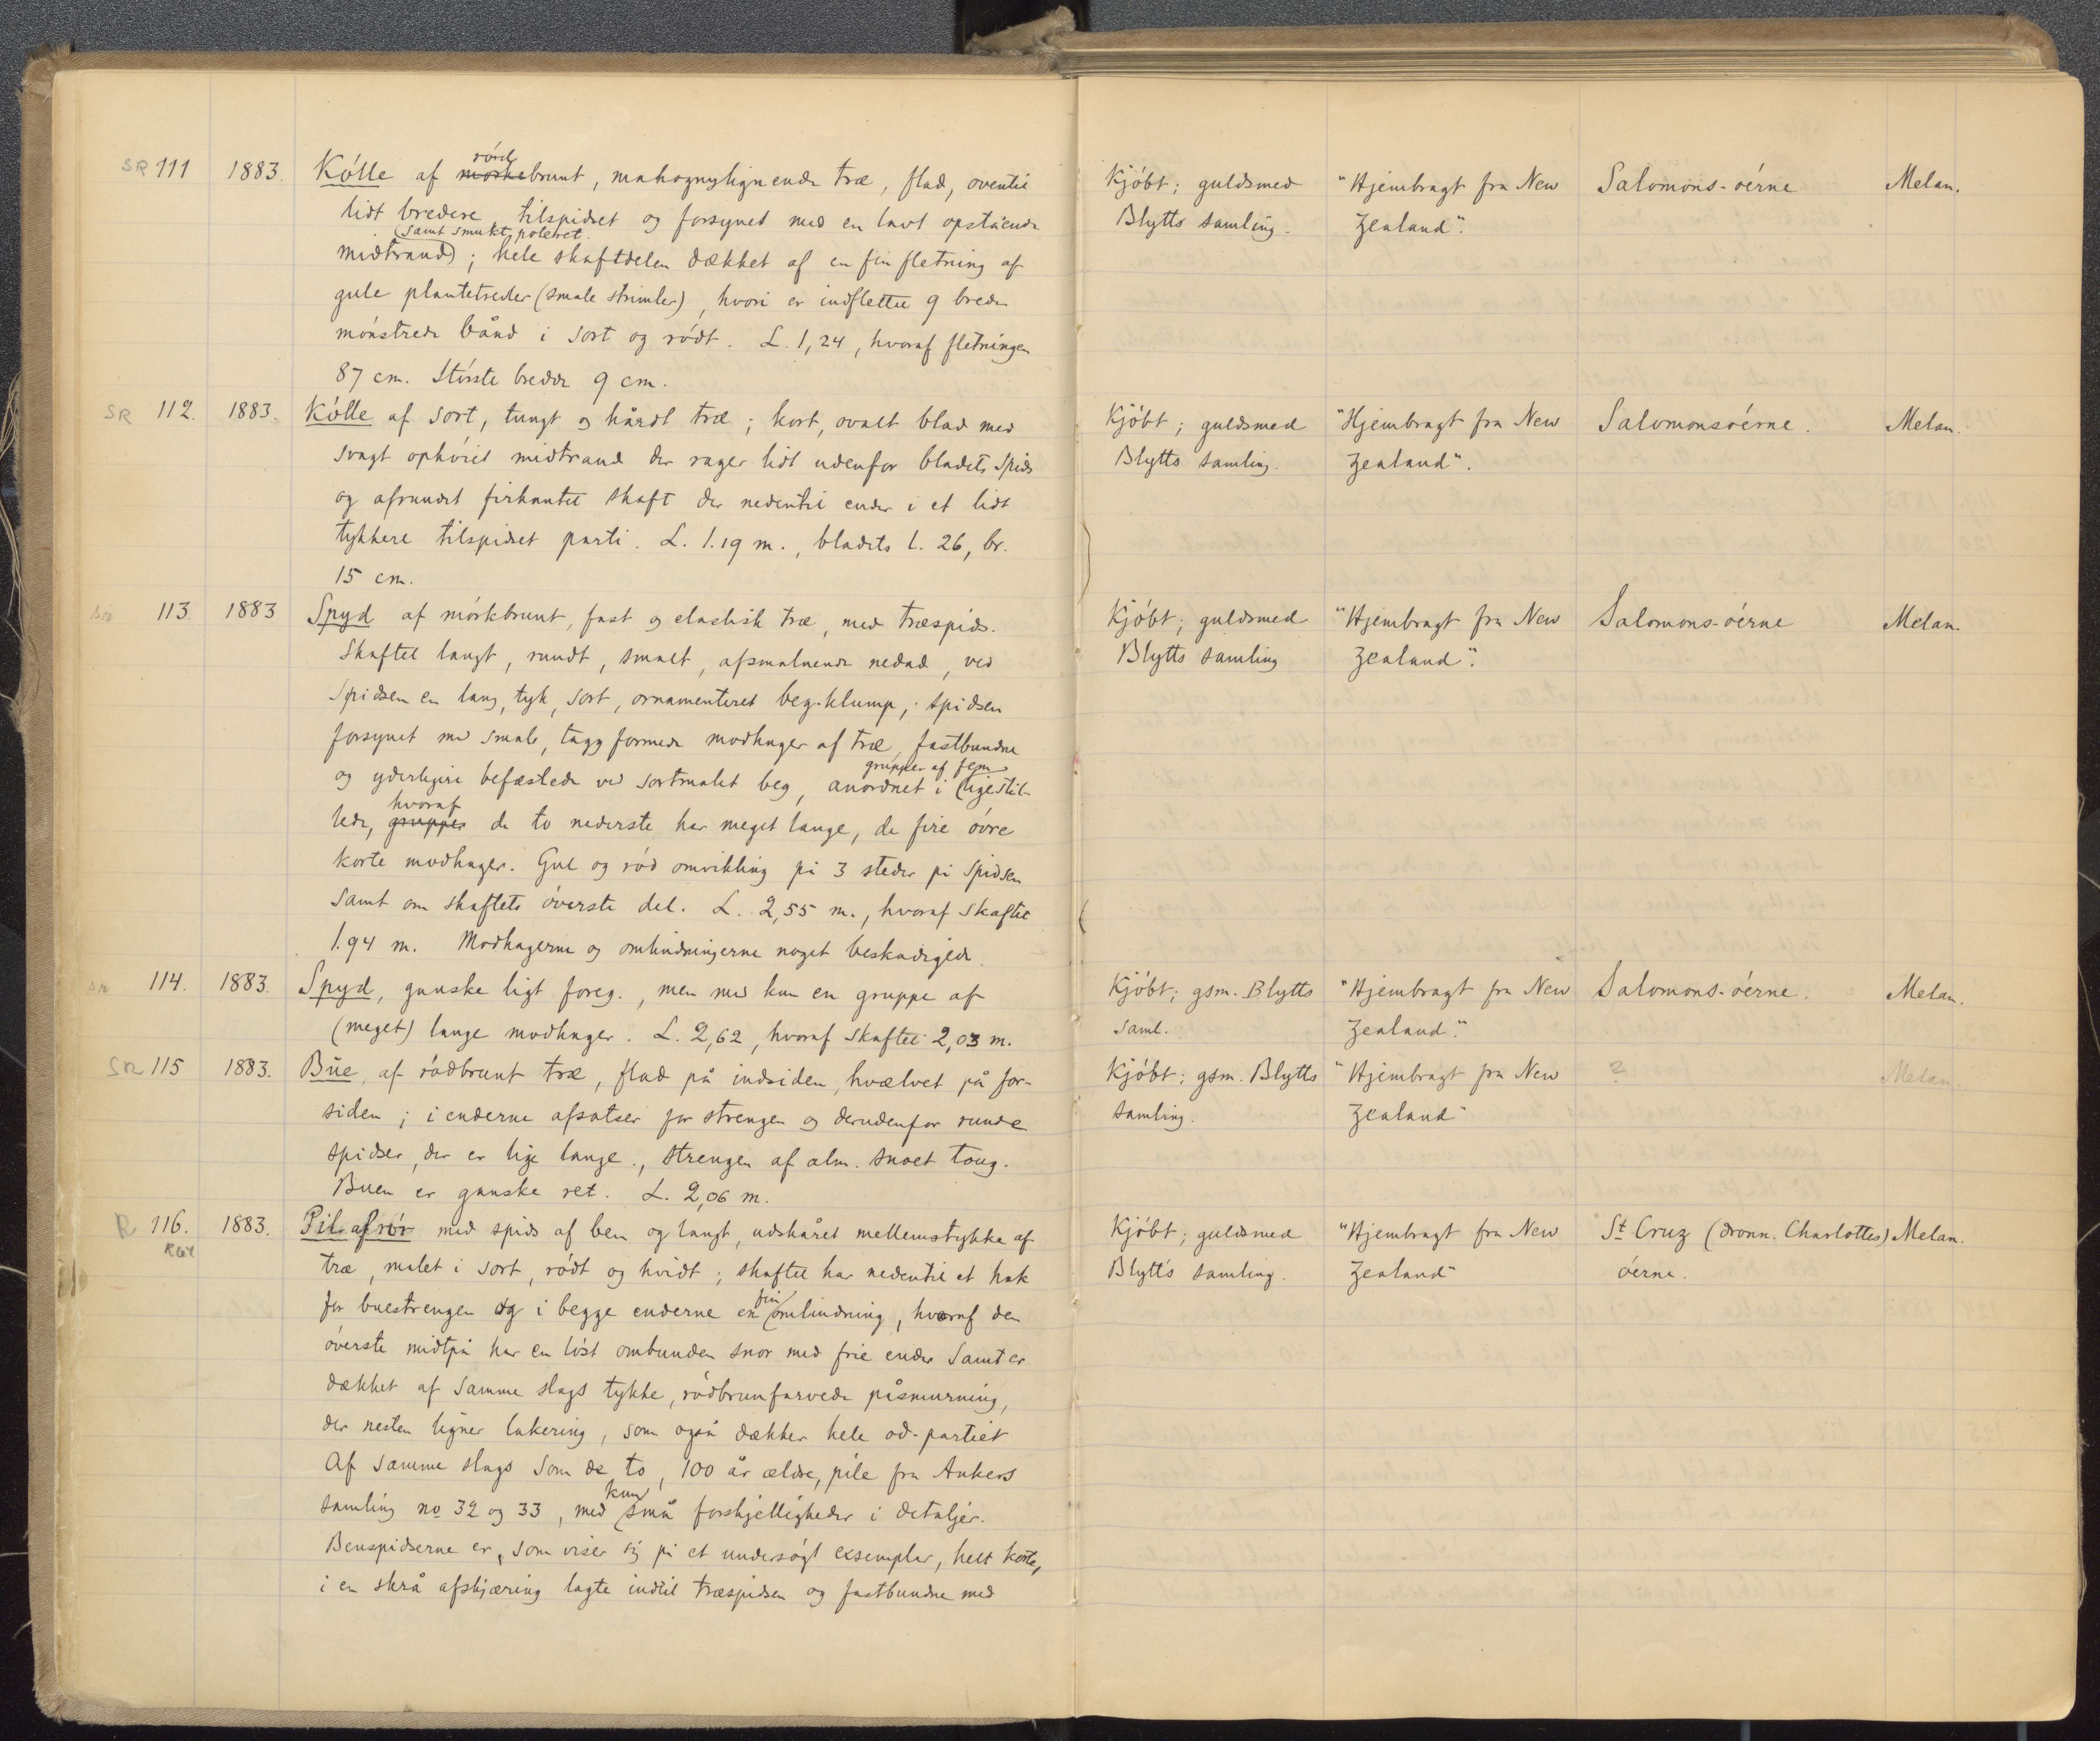 SR 111 1883. Kölle af rödbrunt, mahognylignende træ, flad, oventil
lidt bredere, tilspidset og forsynet med en lavt opstående
midtrand, samt smukt poleret; hele skaftdelen dækket af en fin fletning af
gule plantetrevler (smale strimler), hvori er indflettet 9 brede
mönstrede bånd i sort og rödt. L. 1,24, hvoraf fletningen
87 cm. Störste bredde 9 cm.
Kjöbt; guldsmed "Hjembragt fra New Salomons-öerne Melan.
Blytts samling. Zealand".
SR 112. 1883. Kölle af sort, tungt og hårdt træ; kort, ovalt blad med
svagt ophöiet midtrand der rager lidt udenfor bladets spids
og afrundet firkantet skaft der nedentil ender i et lidt
tykkere tilspidset parti. L. 1.19 m., bladets l. 26, br.
15 cm.
Kjöbt; guldsmed "Hjembragt fra New Salomonsöerne. Melan.
Blytts samling. Zealand".
SR 113. 1883 Spyd af mörkbrunt, fast og elastisk træ, med træspids.
Skaftet langt, rundt, smalt, afsmalnende nedad, ved
spidsen en lang, tyk, sort, ornamenteret beg-klump; spidsen
forsynet med smale, tagg formede modhager af træ, fastbundne
og yderligere befæstede ved sortmalet beg, anordnet i grupper af fem ligestil-
lede, hvoraf de to nederste har meget lange, de fire övre
korte modhager. Gul og röd omvikling på 3 steder på spidsen
samt om skaftets överste del. L. 2,55 m., hvoraf skaftet
1.94 m. Modhagerne og ombindningerne noget beskadigede.
Kjöbt; guldsmed "Hjembragt fra New Salomons-öerne Melan.
Blytts samling Zealand".
SR 114. 1883. Spyd, ganske ligt foreg., men med kun en gruppe af
(meget) lange modhager. L. 2,62, hvoraf skaftet 2,03 m.
Kjöbt; gsm. Blytts "Hjembragt fra New Salomons-öerne. Melan.
saml. Zealand."
SR 115 1883. Bue, af rödbrunt træ, flad på indsiden, hvælvet på for-
siden; i enderne afsatser for strengen og derudenfor runde
spidser, der er lige lange., strengen af alm. snoet toug.
Buen er ganske ret. L. 2,06 m.
Kjöbt; gsm. Blytts "Hjembragt fra New ? Melan.
samling. Zealand"
R 116. 1883. Pil af rör med spids af ben og langt, udskåret mellemstykke af
træ, malet i sort, rödt og hvidt; skaftet har nedentil et hak
for buestrengen og i begge enderne en fin ombindning, hvoraf den
överste midtpå har en löst ombunden snor med frie ender samt er
dækket af samme slags tykke, rödbrunfarvede påsmurning,
der nesten ligner lakering, som også dækker hele od-partiet
Af samme slags som de to, 100 år ældre, pile fra Ankers
samling no 32 og 33, med kun små forskjelligheder i detaljer.
Benspidserne er, som viser sig på et undersögt exsemplar, helt korte,
i en skrå afskjæring lagte indtil træspidsen og fastbundne med
Kjöbt; guldsmed "Hjembragt fra New St Cruz (dronn. Charlottes) Melan.
Blytt's samling. Zealand" öerne.